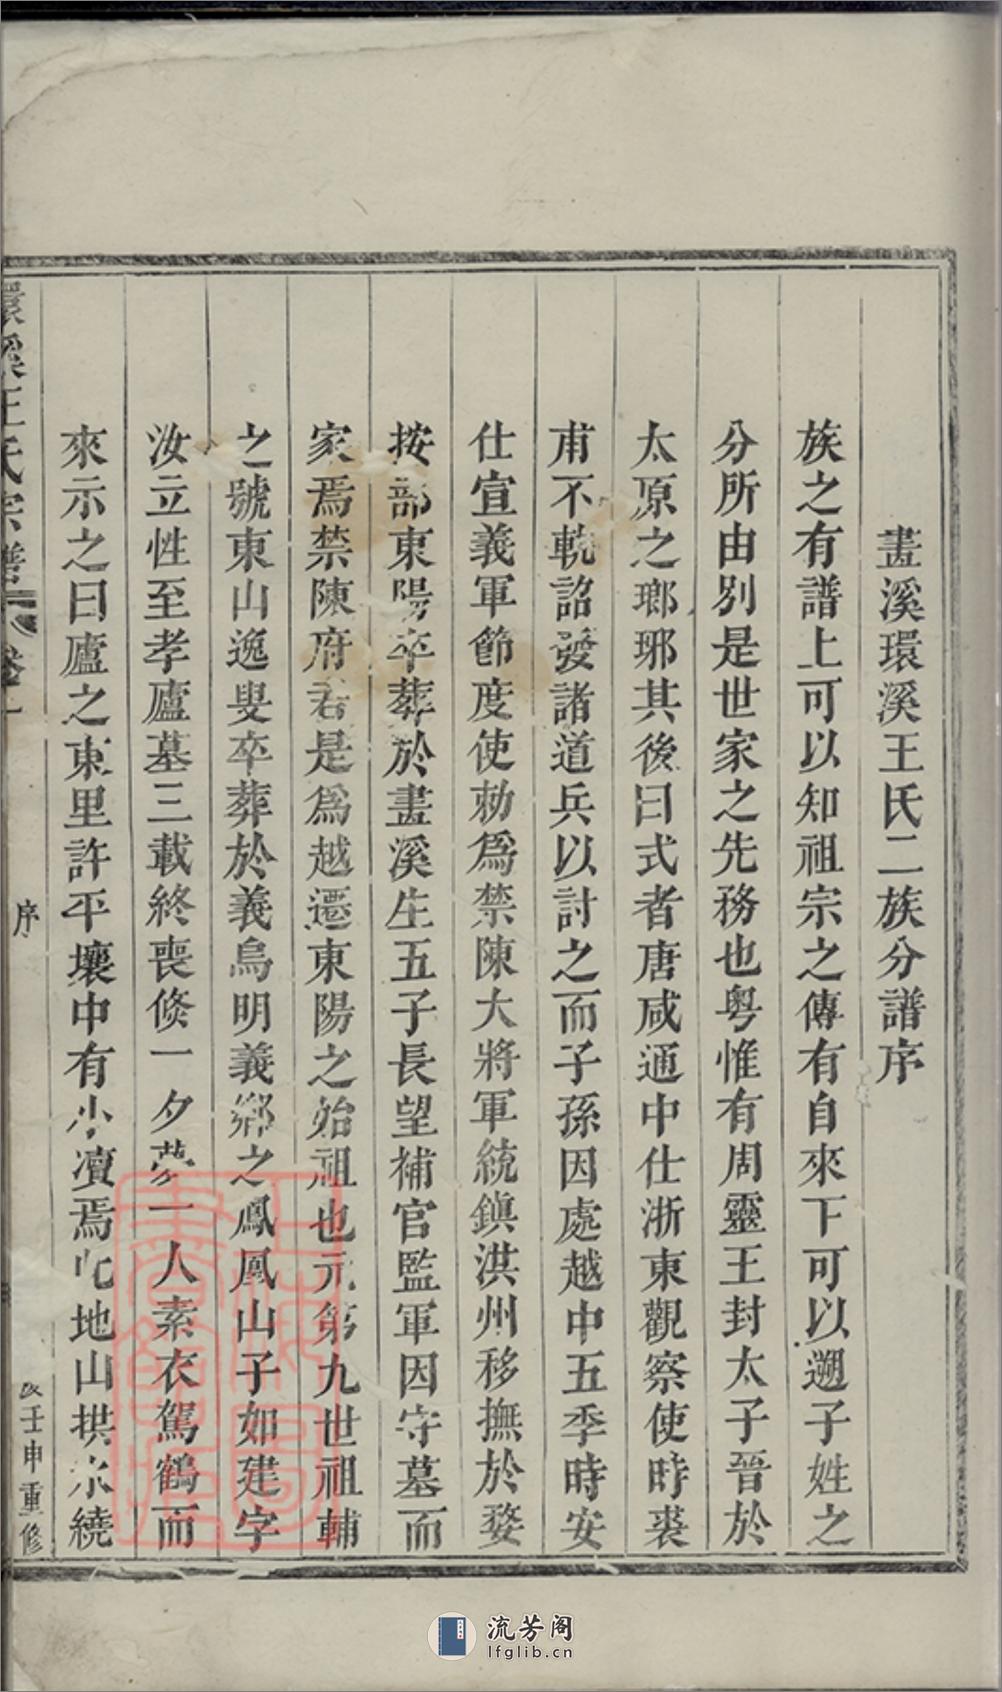 畫溪環溪王氏二族分譜序
族之有譜上可以知祖宗之傳有自來下可以遡子姓之
分所由別是世家之先務也粤惟有周靈王封太子晉於
太原之瑯琊其後曰式者唐咸通中仕浙東觀察使時裘
甫不軌詔發諸道兵以討之而子孫因處越中五季時安
仕宣義軍節度使勅爲禁陳大將軍統鎮洪州移撫於婺
按部東陽卒葬於畫溪生五子長望補官監軍因守墓而
家焉禁陳府君是爲越遷東陽之始祖也元第九世祖輔
之號東山逸叟卒葬於義烏明義鄉之鳳凰山子如建字
汝立性至孝廬墓三載終喪倐一夕夢一人素衣駕鶴而
來示之曰廬之東里許平壤中有小瀆焉此地山拱水繞
環溪王氏宗譜 卷一
序
壬申重修
流芳阁
lfglib.cn